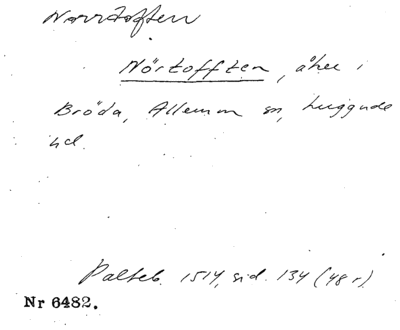 Norrtoften
Nörtofften, åker i
Bröda, Allerum sn, Luggude
hd.
Palteb. 1514, sid. 134 (48 r)
Nr 6482.